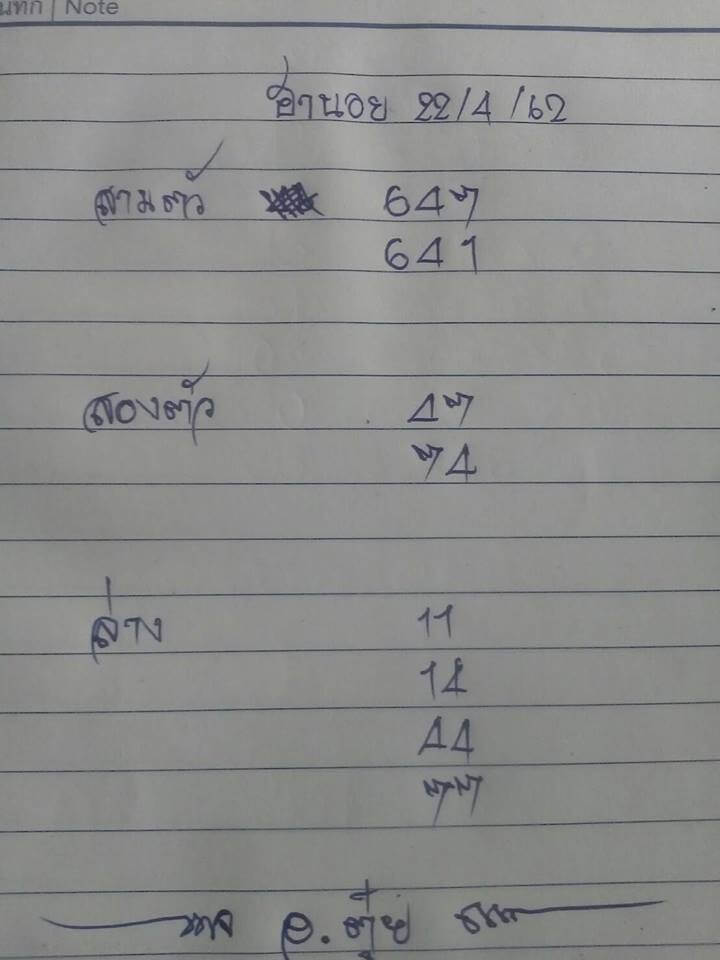 นทึก | Note
ฮานอย 22/4/62
สามตัว 647
641
สองตัว 47
74
ล่าง 11
14
44
77
อ. ตุ๋ย